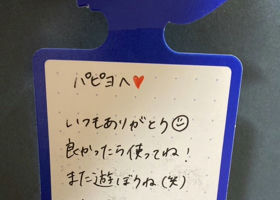 パピヨへ♥
いつもありがとう☺
良かったら使ってね！
また遊ぼうね(笑)